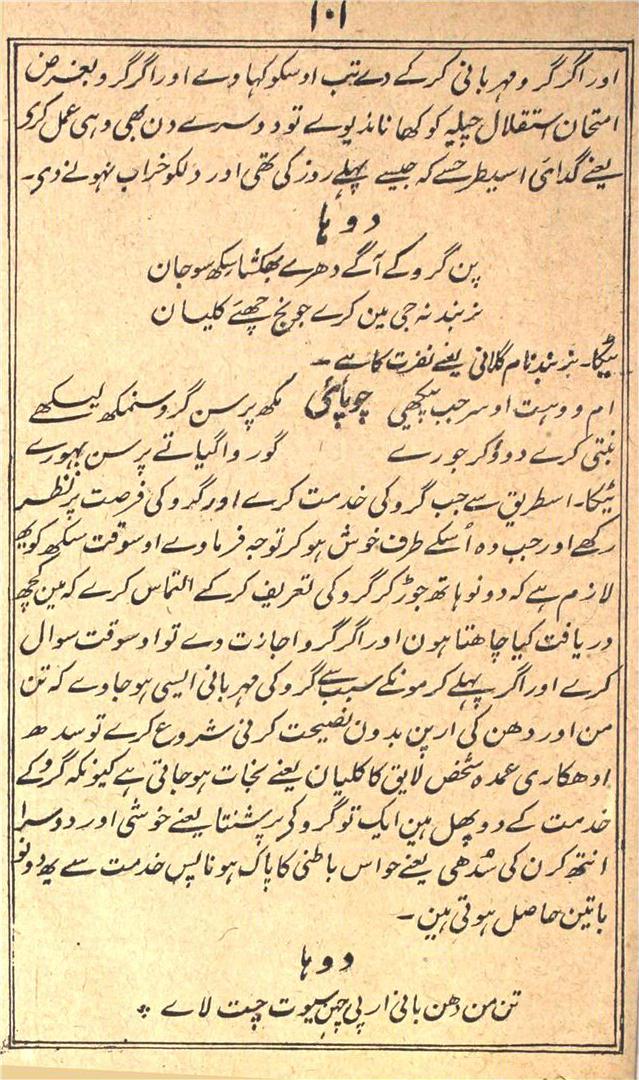 ۱۰۱
اور اگر گرو مہربانی کر کے دے تب اوسکو کہاوے اور اگر گرو بغرض
امتحان استقلال چیلہ کو کھانا ندیوے تو دوسرے دن بھی وہی عمل کری
یعنے گدائی اسیطرحسے کہ جیسے پہلے روز کی تھی اور دلکو خراب نہونے دی۔
دوہا
پن گرو کے آگے دھرے بھکشا سکھ سوجان
نربند نہ جی مین کرے جو نج چھئے کلیان
ٹیکا۔ نربند نام گلانی یعنے نفرت کا ہے ۔
چوپائی
ام ووہت اوسر جب پیکھی مکھ پرسن گرو سنمکھ لیکھے
بنتی کرے دوؤ کر جورے گورواگیا تے پرسن بہورے
ٹیکا۔ اسطریق سے جب گرو کی خدمت کرے اور گرو کی فرصت پر نظر
رکھے اور جب وہ اُسکے طرف خوش ہو کر توجہ فرماوے اوسوقت سکھ کو یھ
لازم ہے کہ دونو ہاتھ جوڑ کر گرو کی تعریف کر کے التماس کرے کہ مین کچھ
دریافت کیا چاھتا ہون اور اگر گرو اجازت دے تو اوسوقت سوال
کرے اور اگر پہلے کرمونکے سبب سے گرو کی مہربانی ایسی ہو جاوے کہ تن
من اور دھن کی ارپن بدون نصیحت کرنی شروع کرے تو سدھ
ادھکاری عمدہ شخص لایق کا کلیان یعنے نجات ہو جاتی ہے کیونکہ گرو کے
خدمت کے دو پھل ہین ایک تو گرو کی پرشنتا یعنے خوشی اور دوسرا
انتھ کرن کی شدھی یعنے حواس باطنی کا پاک ہونا پس خدمت سے یھ دونو
باتین حاصل ہوتی ہین ۔
دوہا
تن من دھن بانی ارپی جہن سیوت چت لاے